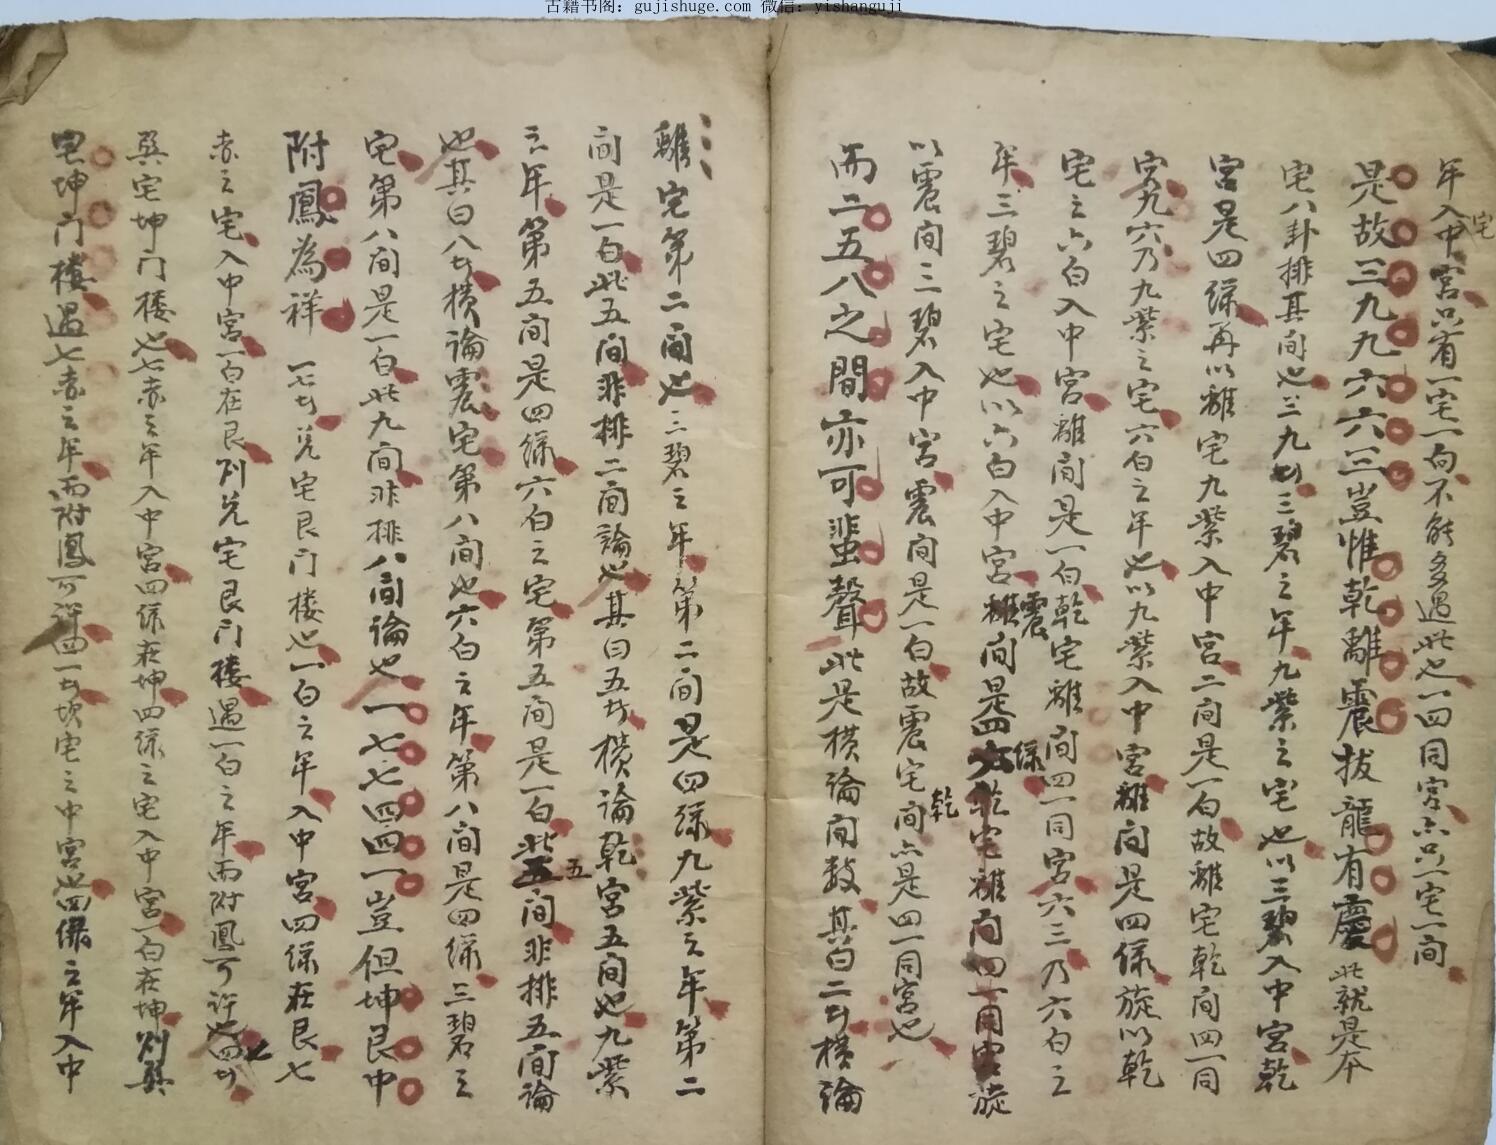 古籍书阁：gujishuge.com 微信：yishanguji
年入中宫只有一宅一向不能多遇此也一四同宫六只一宅一间
宅
是故三九九六六三岂惟乾離震拔龍有慶此就是本
宅八卦排其间也三九者三碧之年九紫之宅也以三碧入中宫乾
宫是四绿再以離宅九紫入中宫二间是一白故離宅乾间四一同
宫九六乃九紫之宅六白之年也以九紫入中宫離间是四绿旋以乾
宅之六白入中宫離间是一白乾宅離间四一同宫六三乃六白之
年三碧之宅也以六白入中宫震间是四绿乾宅離间四一同宫旋
以震间三碧入中宫震间是一白故震宅乾间六是四一同宫也
而二五八之間亦可蜚聲此是横論间数其曰二者横論
離宅第二间也三碧之年第二间是四绿九紫之年第二
间是一白此五间非排二间論也其曰五者横論乾宫五间也九紫
之年第五间是四绿六白之宅第五间是一白此五间非排五间論
也其曰八者横論震宅第八间也六白之年第八间是四绿三碧之
宅第八间是一白此九间非排八间論也一七七四四一豈但坤艮中
附鳳為祥一七者兑宅艮门楼也一白之年入中宫四绿在艮七
赤之宅入中宫一白在艮则兑宅艮门楼遇一白之年而附鳳可许也四七
巽宅坤门楼也七赤之年入中宫四绿在坤四绿之宅入中宫一白在坤则巽
宅坤门楼遇七赤之年而附鳳可许四一者坎宅之中宫也四绿之年入中